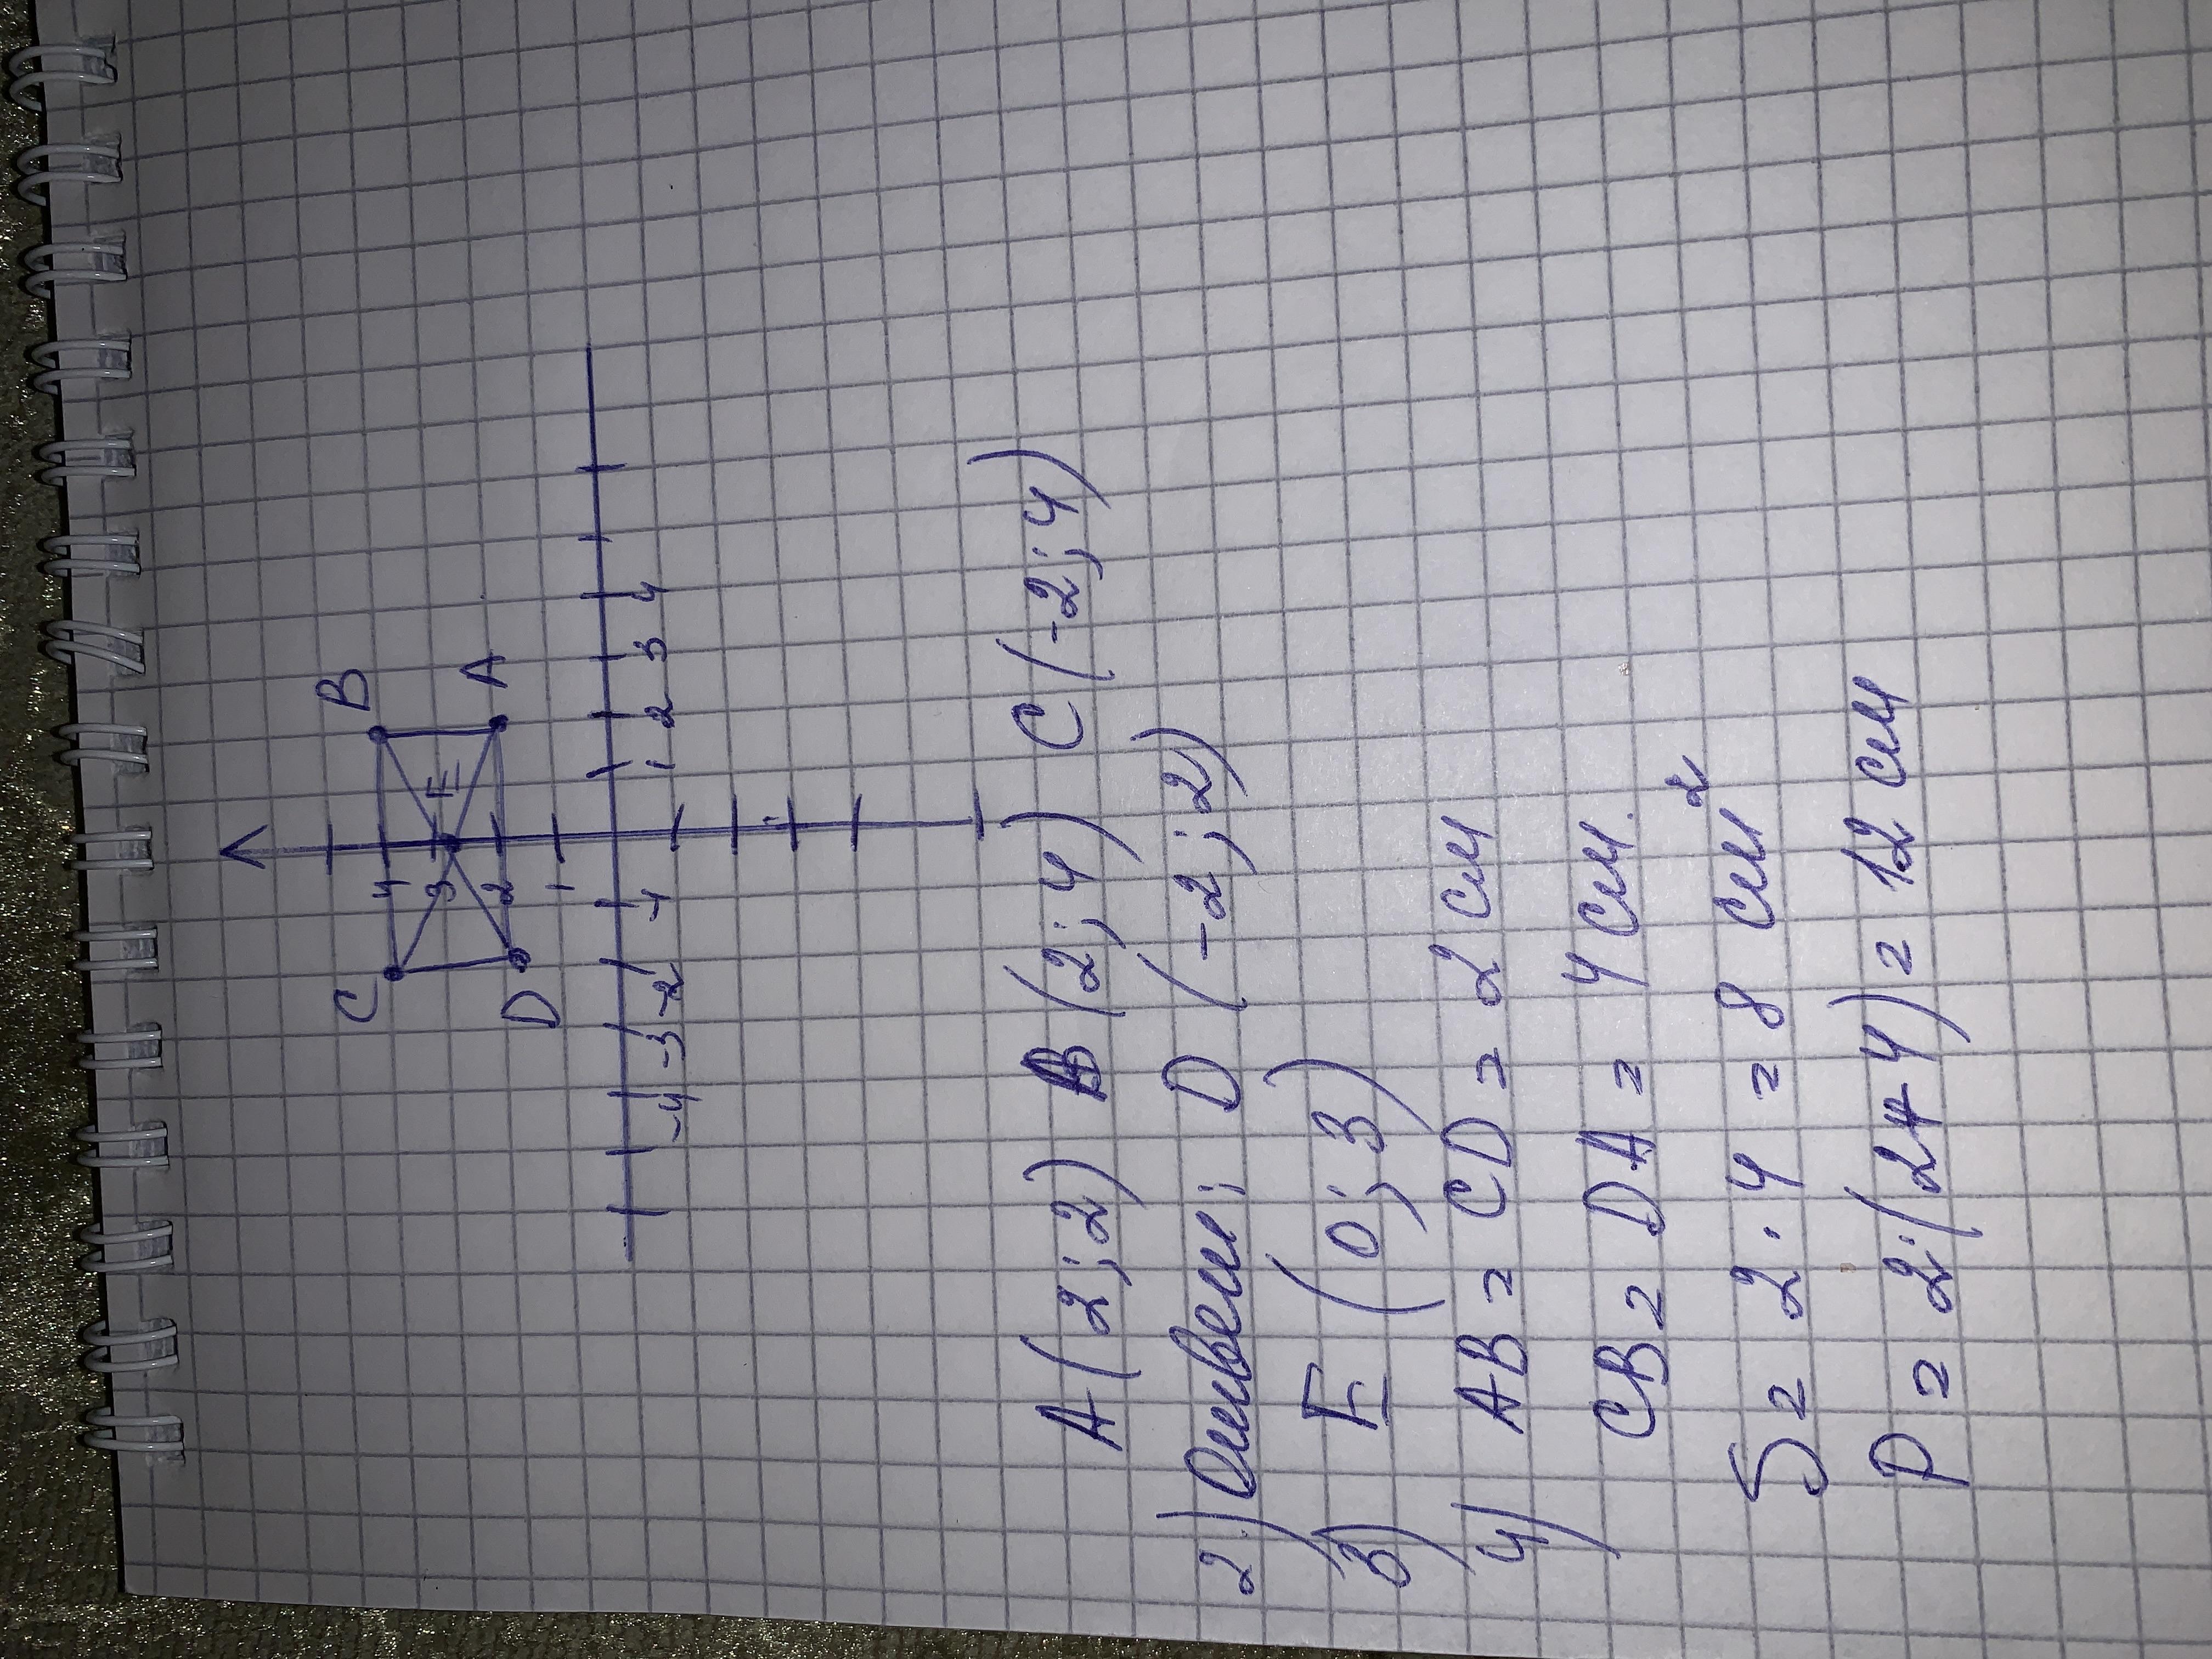 C B
4
3 E
2
D A
1
-4 -3 -2 -1 1 2 3 4
A (2; 2) B (2; 4) C (-2; 4)
2) Ответ: D (-2; 2)
3) E (0; 3)
4) AB = CD = 2 см
CB = DA = 4 см.
S = 2 · 4 = 8 см²
P = 2·(2+4) = 12 см